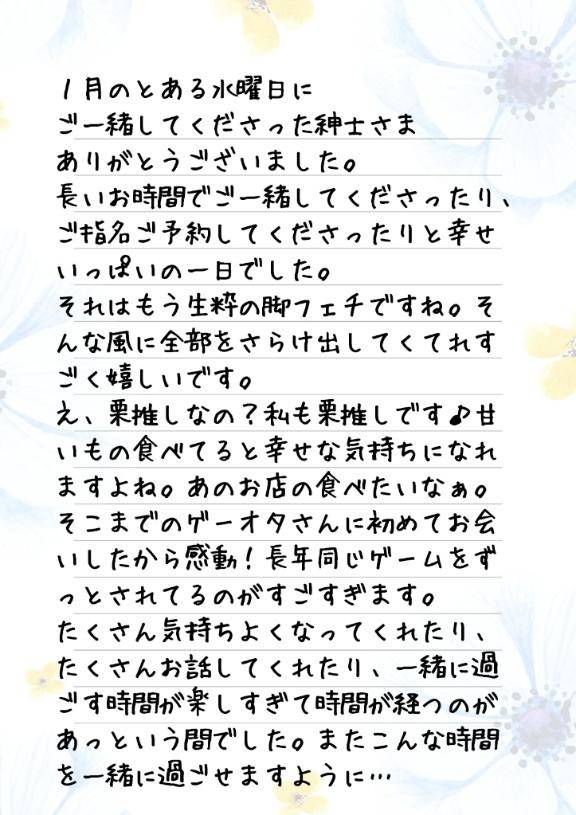 1月のとある水曜日に
ご一緒してくださった紳士さま
ありがとうございました。
長いお時間でご一緒してくださったり、
ご指名ご予約してくださったりと幸せ
いっぱいの一日でした。
それはもう生粋の脚フェチですね。そ
んな風に全部をさらけ出してくてれす
ごく嬉しいです。
え、栗推しなの？私も栗推しです♪甘
いもの食べてると幸せな気持ちになれ
ますよね。あのお店の食べたいなぁ。
そこまでのゲーオタさんに初めてお会
いしたから感動！長年同じゲームをず
っとされてるのがすごすぎます。
たくさん気持ちよくなってくれたり、
たくさんお話してくれたり、一緒に過
ごす時間が楽しすぎて時間が経つのが
あっという間でした。またこんな時間
を一緒に過ごせますように…